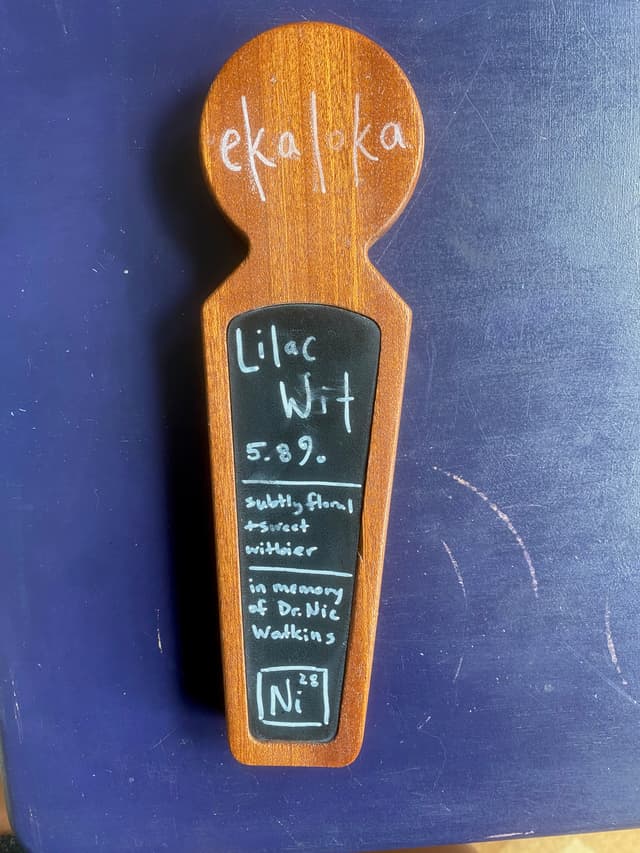 ekaloka
Lilac
Wit
5.8%
subtly floral
+ sweet
witbier
in memory
of Dr. Nic
Watkins
Ni 28